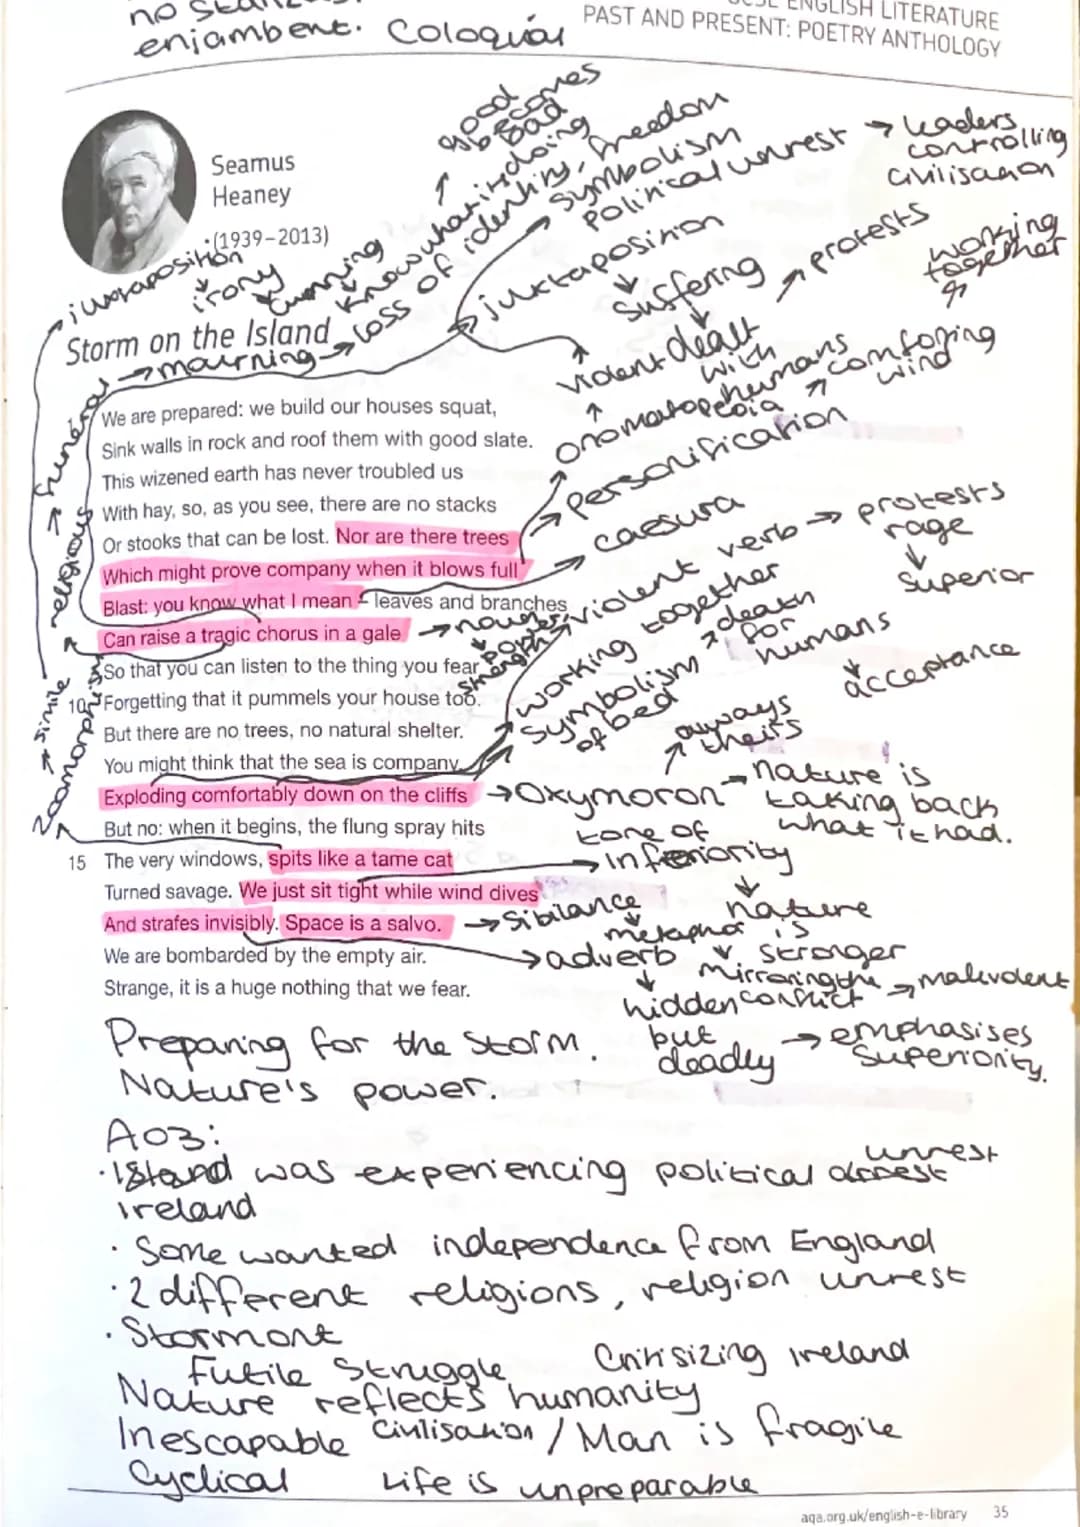 no stanzas.
enjambent. Coloquial
GCSE ENGLISH LITERATURE
PAST AND PRESENT: POETRY ANTHOLOGY
Seamus
Heaney
(1939–2013)
juxtaposition
irony
cunning
know what it's doing
good
becomes
bad
loss of identity, freedom
symbolism
political unrest → leaders
controlling
civilisation
juxtaposition
suffering
dealt
with
humans
protests
working
together
Storm on the Island
mourning
funeral
religious
simile
zoomorphism
violent
onomatopoeia
comforting
wind
personification
caesura
violent verb → protests
rage
superior
We are prepared: we build our houses squat,
Sink walls in rock and roof them with good slate.
This wizened earth has never troubled us
With hay, so, as you see, there are no stacks
Or stooks that can be lost. Nor are there trees
Which might prove company when it blows full
Blast: you know what I mean – leaves and branches
Can raise a tragic chorus in a gale
So that you can listen to the thing you fear
10 Forgetting that it pummels your house too.
But there are no trees, no natural shelter.
You might think that the sea is company,
Exploding comfortably down on the cliffs
But no: when it begins, the flung spray hits
15 The very windows, spits like a tame cat
Turned savage. We just sit tight while wind dives
And strafes invisibly. Space is a salvo.
We are bombarded by the empty air.
Strange, it is a huge nothing that we fear.
strength
working together
symbolism
of bed
death
for
humans
acceptance
always
theirs
→ oxymoron
nature is
taking back
what it had.
tone of
inferiority
nature
is
stronger
→ sibilance
metaphor
mirroring the
conflict
malevolent
→ adverb
hidden
but
deadly
→ emphasises
superiority.
Preparing for the storm.
Nature's power.
AO3:
· Island was experiencing political unrest
ireland
· Some wanted independence from England
· 2 different religions, religion unrest
· Stormont
Futile struggle
Critisizing ireland
Nature reflects humanity
Inescapable
Civilisation / Man is fragile
Cyclical
Life is unpreparable
aqa.org.uk/english-e-library 35